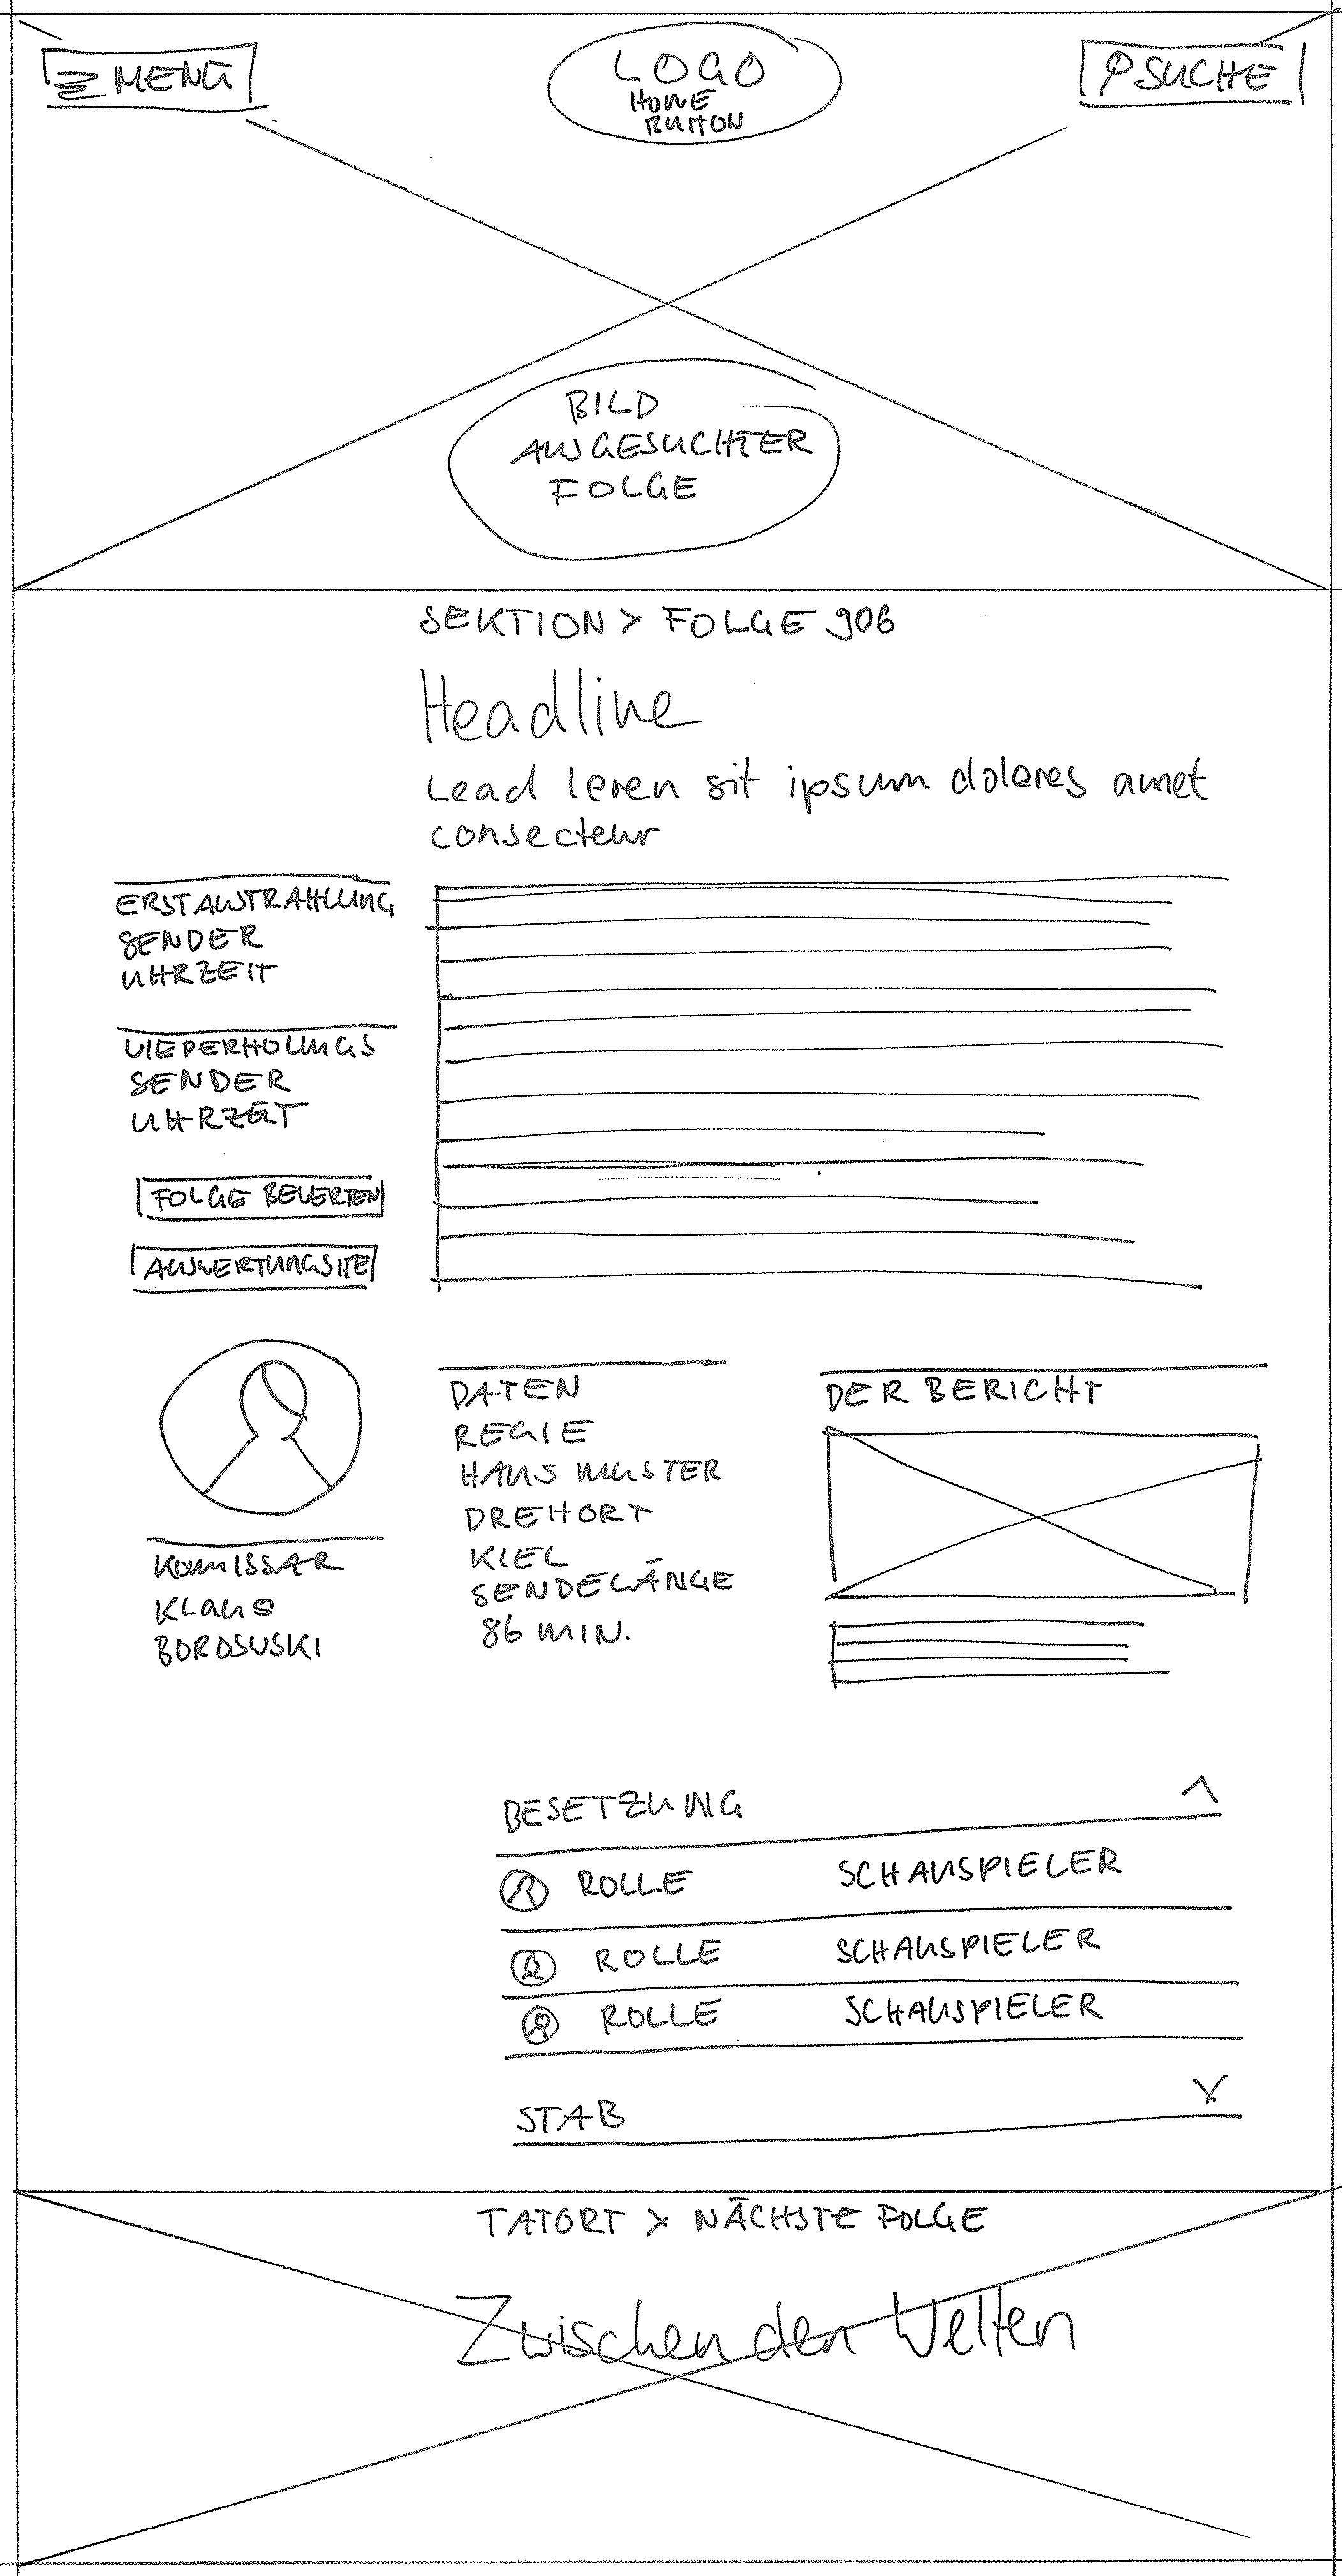 MENÜ
LOGO
HOME
BUTTON
SUCHE
BILD
AUSGESUCHTER
FOLGE
SEKTION > FOLGE 906
Headline
Lead leren sit ipsum dolores amet
consecteur
ERSTAUSTRAHLUNG
SENDER
UHRZEIT
WIEDERHOLUNGS
SENDER
UHRZEIT
FOLGE BEWERTEN
AUSWERTUNGSITE
DATEN
REGIE
HANS MUSTER
DREHORT
KIEL
SENDELÄNGE
86 MIN.
DER BERICHT
KOMMISSAR
KLAUS
BOROWSKI
BESETZUNG
ROLLE SCHAUSPIELER
ROLLE SCHAUSPIELER
ROLLE SCHAUSPIELER
STAB
TATORT > NÄCHSTE FOLGE
Zwischen den Welten